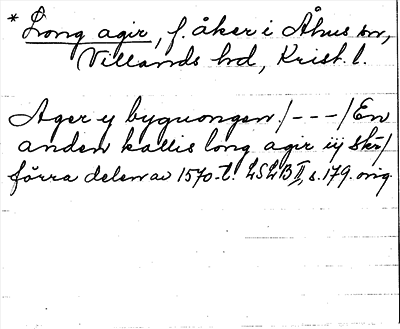 * Long agir, f. åker i Åhus sn,
Villands hd, Krist. l.
Ager y byguongen /---/ En
anden kallis long agir iij skr/
förra delen av 1570-t. LSLB II, s. 179. orig.